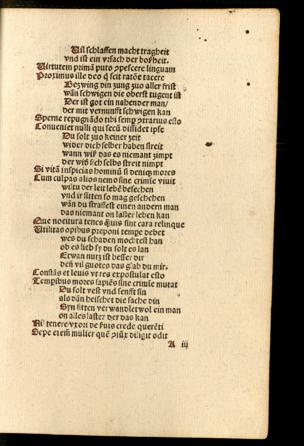 Uil schlaffen macht tragheit
vnd ist ein vrsach der boßheit.
Uirtutem primã puto ↄpescere linguam
Proximus ille deo q̃ scit ratõe tacere
Bezwing din zung zuo aller frist
wañ schwigen die oberst tugent ist
Der ist got ein nahender man/
der mit vernunfft schwigen kan
Sperne repugnãdo tibi semp ↄtrarius esto
Conueniet nulli qui secũ dissidet ipse
Du solt zuo keiner zeit
wider dich selber haben streit
wann wiß das es niemant zimpt
der wid sich selbs streit nimpt
Si vitã inspicias hominũ si deniq mores
Cum culpas alios nemo sine crimĩe viuit
wiltu der leit lebẽ besechen
vnd ir sitten so mag geschehen
wãn du straffest einen andern man
das niemant on laster leben kan
Que nocitura tenes q̃uis sint cara relinque
Utilitas opibus preponi tempe debet
wes du schaden mochtest han
ob es lieb sy du solt es lan
Etwan nutz ist besser dir
deñ vil guotes das glab du mir.
Constãs et leuis vt res expostulat esto
Tempibus mores sapiẽs sine crimĩe mutat
Du solt vest vnd senfft sin
als dañ heischet die sache din
Syn sitten verwandlet wol ein man
on alles laster der das kan
Nil temere vxori de fuis crede querẽti
Sepe etem̃ mulier quẽ ↄiũx diligit odit
A iij